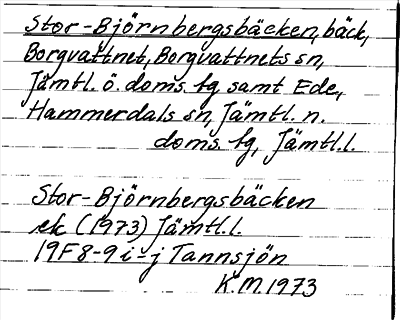 Stor-Björnbergsbäcken, bäck,
Borgvattnet, Borgvattnets sn,
Jämtl. ö. doms. tg samt Ede,
Hammerdals sn, Jämtl. n.
doms. tg, Jämtl.l.
Stor-Björnbergsbäcken
ek (1973) Jämtl.l.
19F8-9i-j Tannsjön
K.M.1973